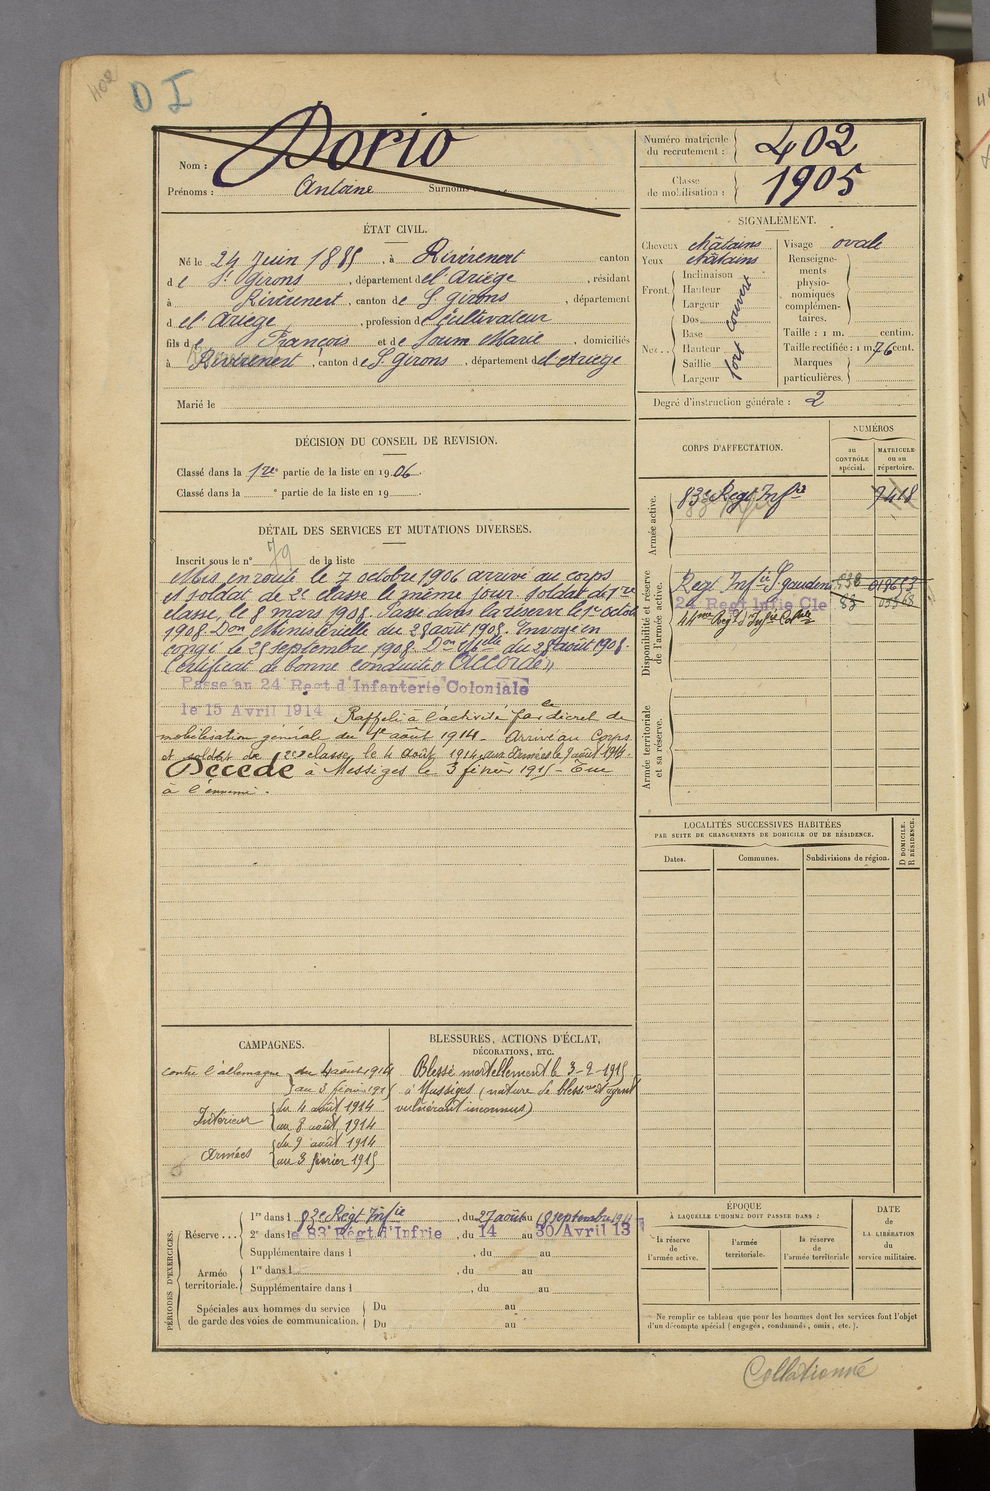 402
D I
Nom : Dorio
Prénoms : Antoine Surnoms
Numéro matricule du recrutement : 402
Classe de mobilisation : 1905
ÉTAT CIVIL.
Né le 24 Juin 1885, à Rivèrenert canton
de St Girons, département de l'Ariège, résidant
à Rivèrenert, canton de St girons, département
d el Ariège, profession de cultivateur
fils de François et de Soum Marie, domiciliés
à Rivèrenert, canton de St Girons, département de l'Ariège
Marié le
SIGNALEMENT.
Cheveux châtains
Yeux châtains
Front. Inclinaison
Hauteur
Largeur
Nez.. Dos
Base
Hauteur
Saillie
Largeur
fort couvert
Visage ovale
Renseignements physionomiques complémentaires.
Taille : 1 m. centim.
Taille rectifiée : 1 m. 76 cent.
Marques particulières.
Degré d'instruction générale : 2
DÉCISION DU CONSEIL DE REVISION.
Classé dans la 1re partie de la liste en 1906.
Classé dans la e partie de la liste en 19
CORPS D'AFFECTATION.
NUMÉROS
au CONTRÔLE spécial.
MATRICULE ou au répertoire.
Armée active.
83e Regt Infie 7418
Disponibilité et réserve de l'armée active.
Regt Infie St gaudens
24 Regt Infie Cle 83
44me Regt d'Infie Colale
Armée territoriale et sa réserve.
DÉTAIL DES SERVICES ET MUTATIONS DIVERSES.
Inscrit sous le n° 79 de la liste
Mis en route le 7 octobre 1906 arrivé au corps
et soldat de 2e classe le même jour. Soldat de 1re
classe, le 8 mars 1908. Passé dans la réserve le 1er octobre
1908. Don Ministérielle du 28 août 1908. Envoyé en
congé le 25 septembre 1908. Don Mielle du 28 août 1908.
Certificat de bonne conduite "Accordé"
Passé au 24 Regt d'Infanterie Coloniale
le 15 Avril 1914 Rappelé à l'activité par le décret de
mobilisation générale du 1er août 1914 - Arrivé au Corps
et soldat de 2e classe le 4 août 1914, aux Armées le 9 août 1914.
Décédé à Massiges le 3 février 1915 - Tué
à l'ennemi.
LOCALITÉS SUCCESSIVES HABITÉES
PAR SUITE DE CHANGEMENTS DE DOMICILE OU DE RÉSIDENCE.
Dates. Communes. Subdivisions de région. D DOMICILE. R RÉSIDENCE.
CAMPAGNES.
contre l'allemagne du 4 août 1914
au 3 février 1915
Intérieur du 4 août 1914
au 8 août 1914
Armées du 9 août 1914
au 3 février 1915
BLESSURES, ACTIONS D'ÉCLAT,
DÉCORATIONS, ETC.
Blessé mortellement le 3-2-1915
à Massiges (nature de blessure et agent
vulnérant inconnus)
PÉRIODES D'EXERCICES.
Réserve ... 1re dans l 83e Regt Infie, du 27 août au 18 septembre 1911
2e dans le 83e Régt d'Infrie, du 14 au 30 Avril 13
Supplémentaire dans l , du au
Armée territoriale. 1re dans l , du au
Supplémentaire dans l , du au
Spéciales aux hommes du service Du au
de garde des voies de communication. Du au
ÉPOQUE
À LAQUELLE L'HOMME DOIT PASSER DANS :
la réserve de l'armée active.
l'armée territoriale.
la réserve de l'armée territoriale
DATE DE LA LIBÉRATION du service militaire.
Ne remplir ce tableau que pour les hommes dont les services font l'objet
d'un décompte spécial (engagés, condamnés, omis, etc.).
Collationné